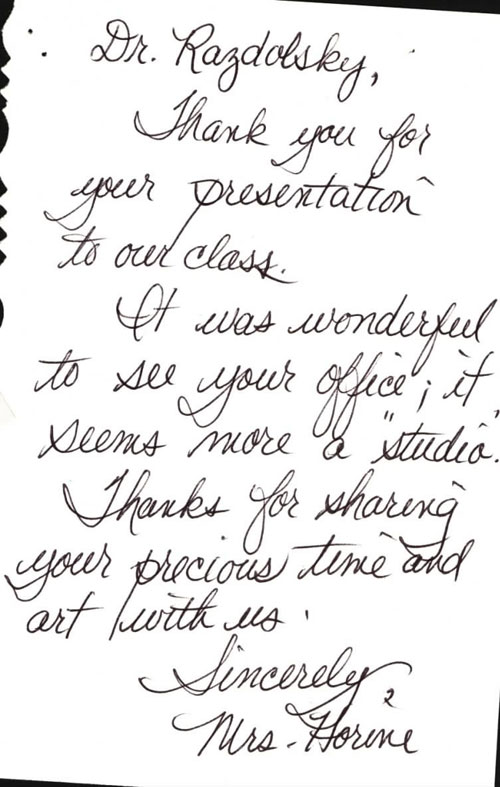 Dr. Razdolsky,
Thank you for
your presentation
to our class.
It was wonderful
to see your office; it
seems more a "studio."
Thanks for sharing
your precious time and
art with us.
Sincerely,
Mrs. Horine